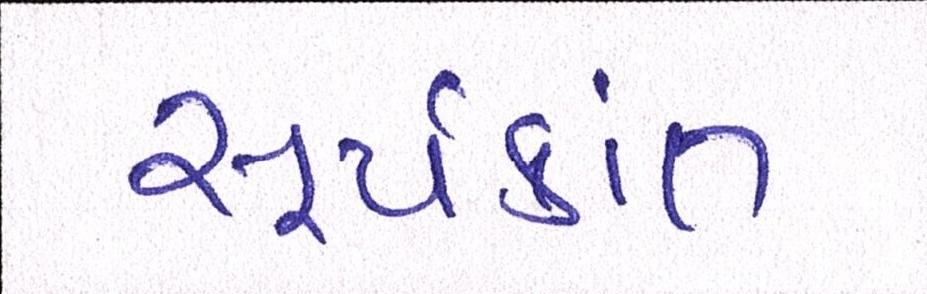 સૂર્યકાંત